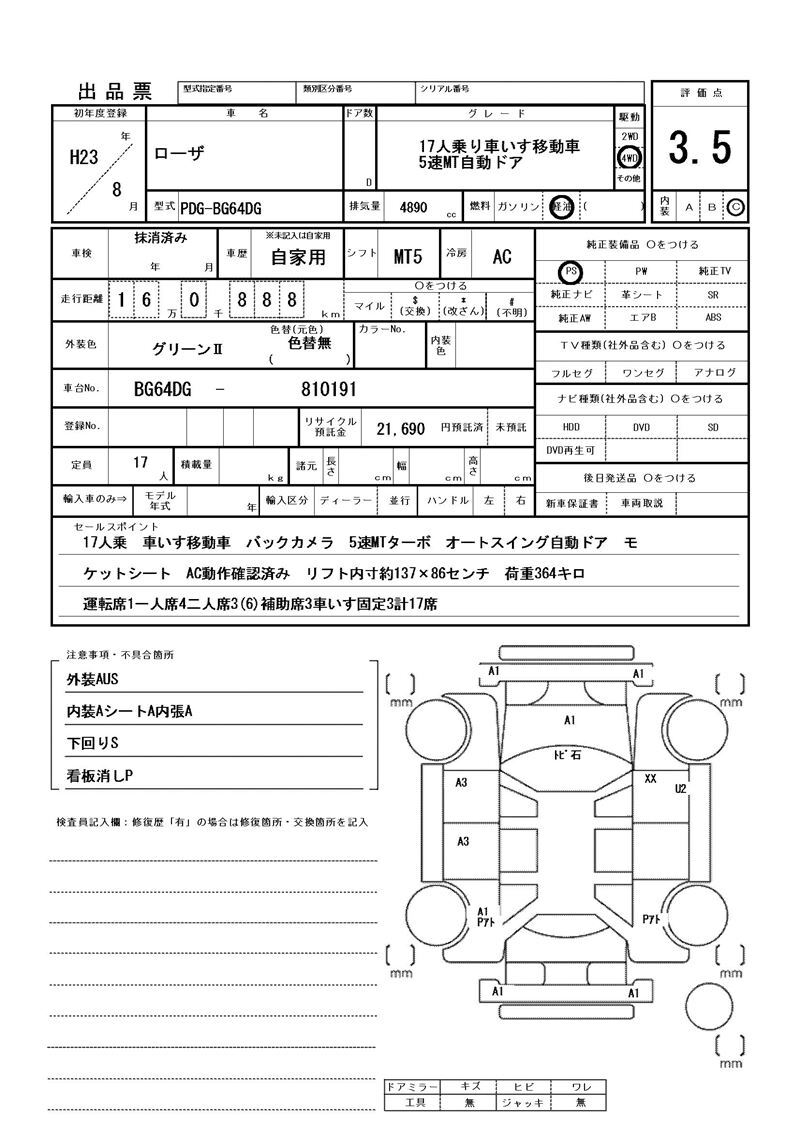 出品票
型式指定番号 類別区分番号 シリアル番号
評価点
3.5
内装 A B C
初年度登録 車名 ドア数 グレード 駆動
H23 年 8 月
ローザ
D
17人乗り車いす移動車
5速MT自動ドア
2WD
4WD
その他
型式 PDG-BG64DG 排気量 4890 cc 燃料 ガソリン 軽油 ( )
車検 抹消済み 年 月 車歴 ※未記入は自家用 自家用 シフト MT5 冷房 AC
走行距離 16 万 0 千 888 km
○をつける
マイル $(交換) *(改ざん) #(不明)
外装色 グリーンⅡ 色替(元色) 色替無 ( ) カラーNo. 内装色
車台No. BG64DG - 810191
登録No. リサイクル預託金 21,690 円預託済 未預託
定員 17 人 積載量 kg 諸元 長さ cm 幅 cm 高さ cm
輸入車のみ⇒ モデル年式 年 輸入区分 ディーラー 並行 ハンドル 左 右
純正装備品 ○をつける
PS PW 純正TV
純正ナビ 革シート SR
純正AW エアB ABS
TV種類(社外品含む) ○をつける
フルセグ ワンセグ アナログ
ナビ種類(社外品含む) ○をつける
HDD DVD SD
DVD再生可
後日発送品 ○をつける
新車保証書 車両取説
セールスポイント
17人乗 車いす移動車 バックカメラ 5速MTターボ オートスイング自動ドア モ
ケットシート AC動作確認済み リフト内寸約137×86センチ 荷重364キロ
運転席1一人席4二人席3(6)補助席3車いす固定3計17席
注意事項・不具合箇所
外装AUS
内装AシートA内張A
下回りS
看板消しP
検査員記入欄:修復歴「有」の場合は修復箇所・交換箇所を記入
A1 A1
mm mm
A1
ﾄﾋﾞ石
A3 XX U2
A3
A1
Pｱﾄ Pｱﾄ
mm mm
A1 A1
mm
ドアミラー キズ ヒビ ワレ
工具 無 ジャッキ 無